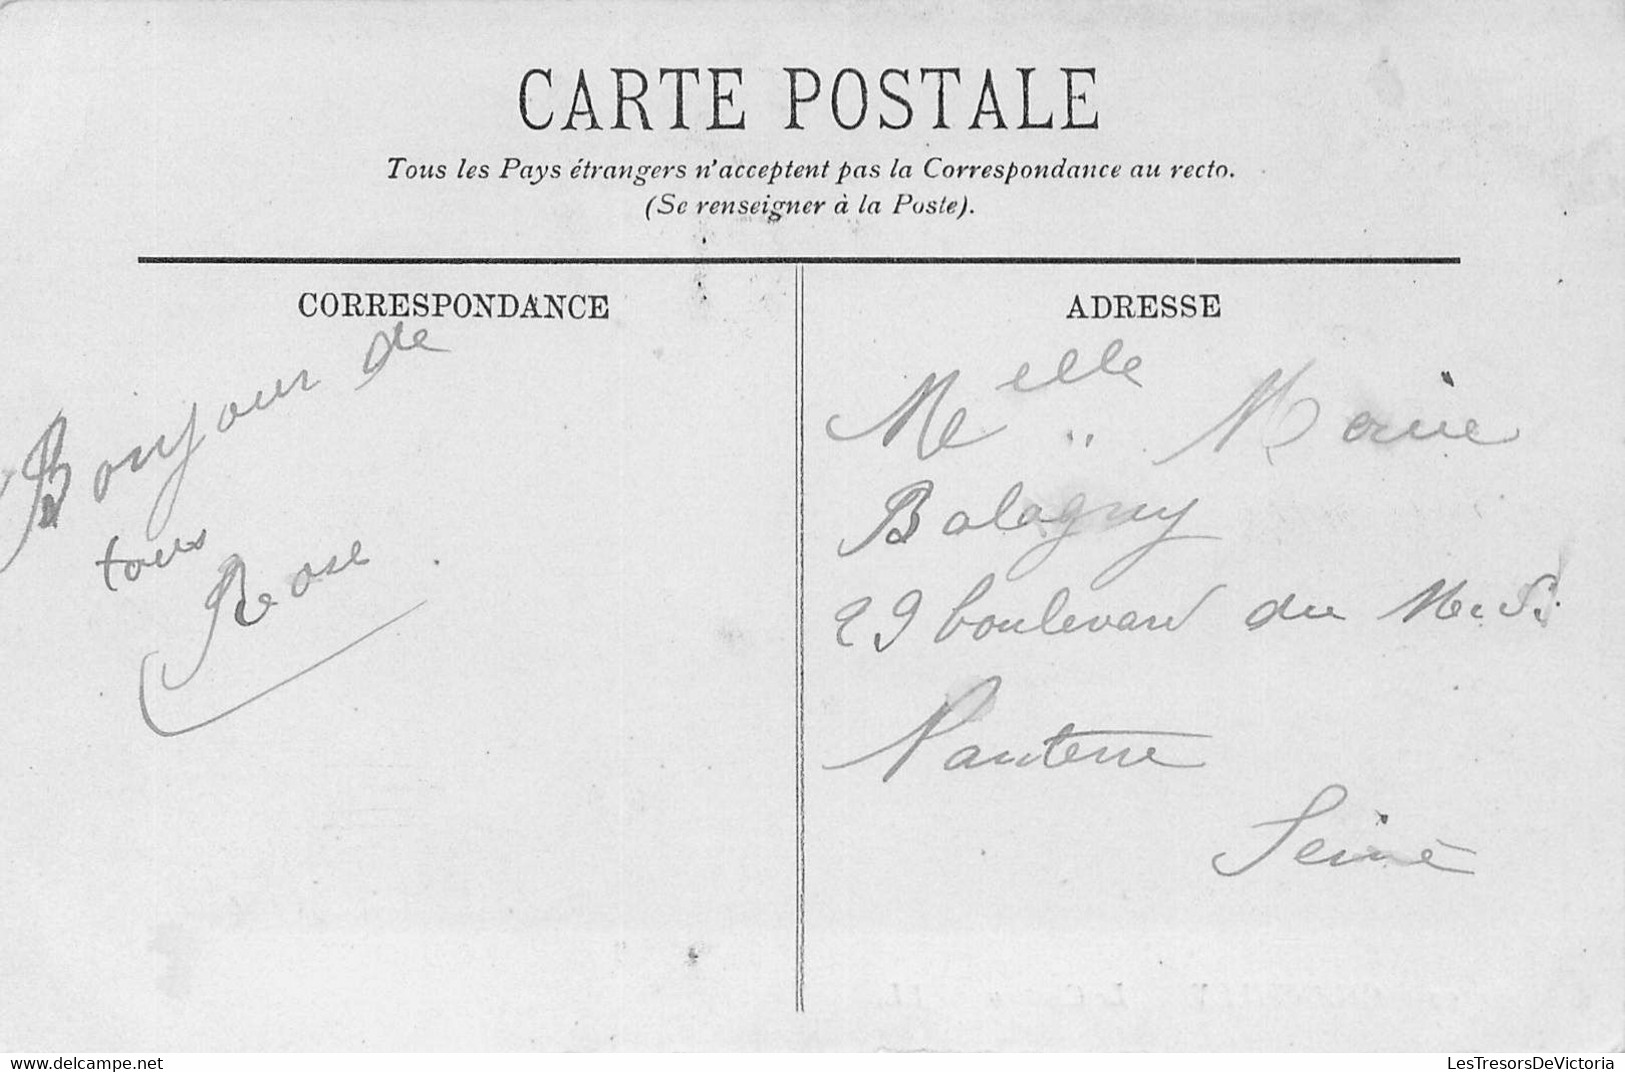 CARTE POSTALE
Tous les Pays étrangers n'acceptent pas la Correspondance au recto.
(Se renseigner à la Poste).
CORRESPONDANCE
Bonjour de
tous
Rose
ADRESSE
Melle Marie
Balagny
29 boulevard du
Nanterre
Seine
delcampe.net
LesTresorsDeVictoria